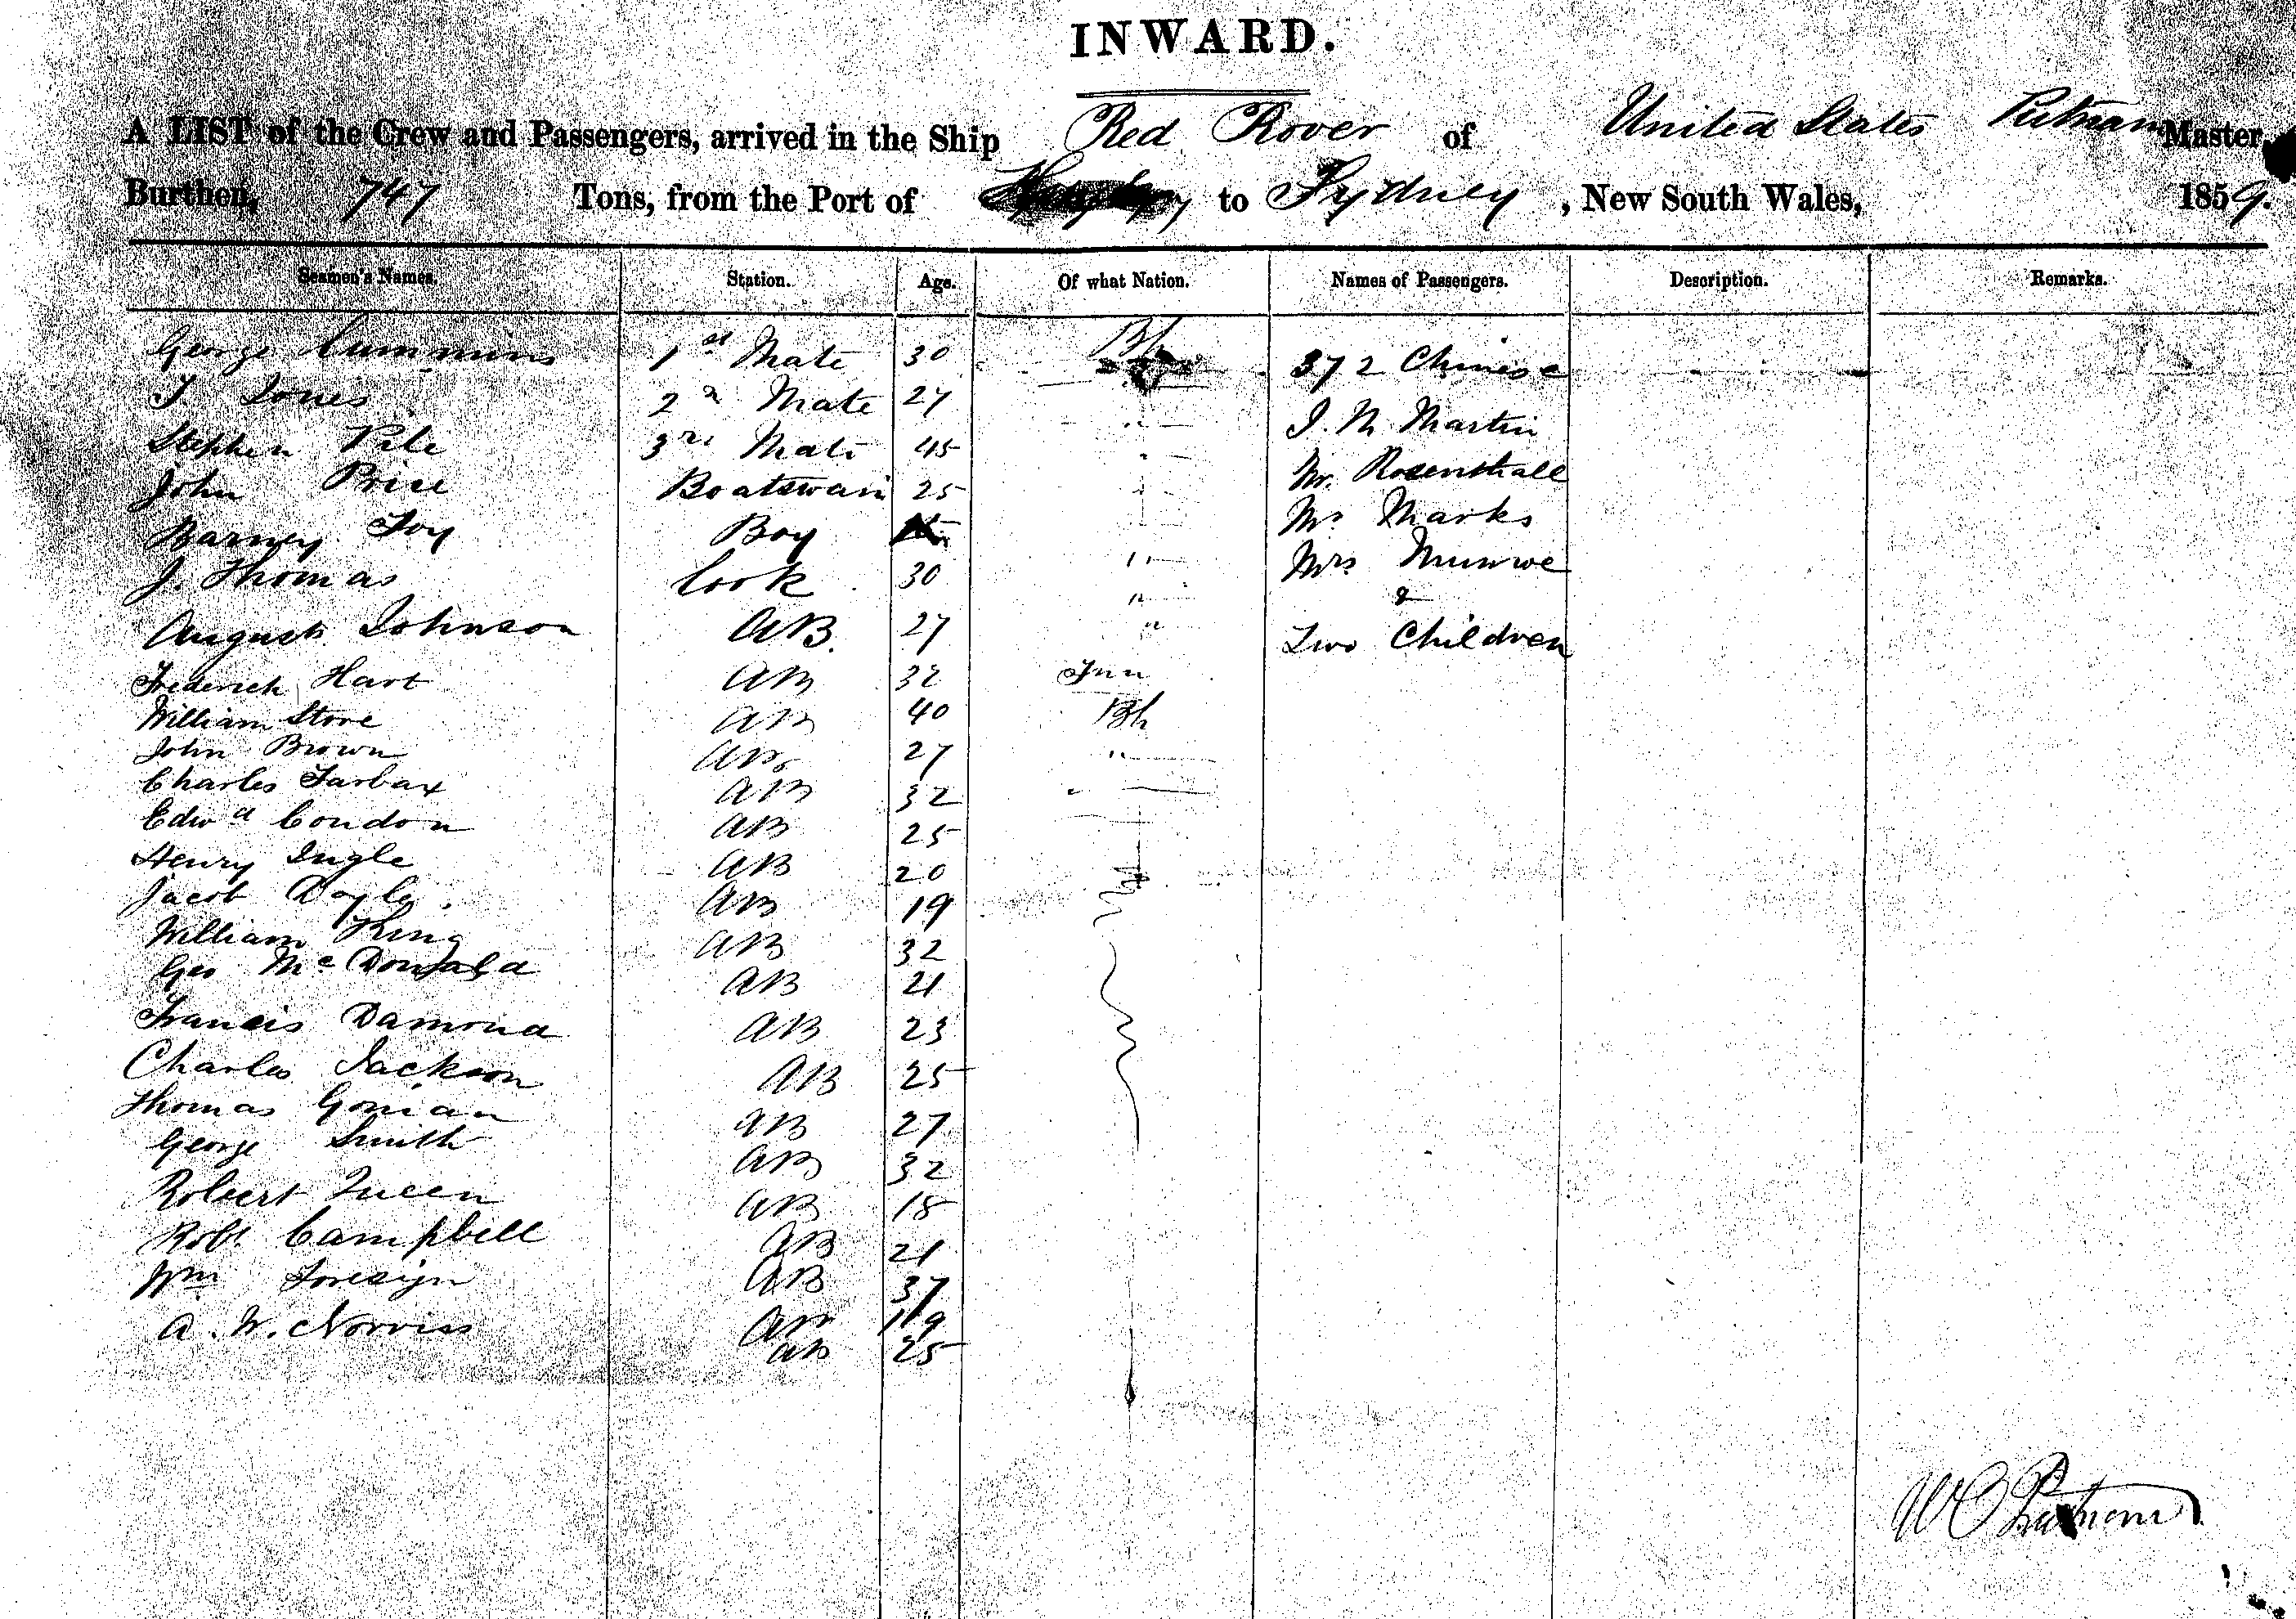 INWARD.
A LIST of the Crew and Passengers, arrived in the Ship Red Rover of United States Putnam Master,
Burthen, 747 Tons, from the Port of to Sydney, New South Wales, 1859.
Seamen's Names. Station. Age. Of what Nation. Names of Passengers. Description. Remarks.
George Cummins 1st Mate 30 Bh 372 Chinese
J Jones 2d Mate 27 " J. M Martin
Stephen Pile 3rd Mate 45 " Mr. Rosenthall
John Price Boatswain 25 " Mr Marks
Barney Foy Boy Mrs Munroe
J. Thomas Cook 30 " &
August Johnson AB. 27 " Two Children
Frederich Hart AB 32
William Stove AB 40 Bh
John Brown AB 27 "
Charles Farbax AB 32 "
Edwd Condon AB 25
Henry Ingle AB 20
Jacob Doyle AB 19
William King AB 32
Geo McDonald AB 21
Francis Damond AB 23
Charles Jackson AB 25
Thomas Gonian AB 27
George Smith AB 32
Robert Queen AB 18
Robt Campbell AB 21
Wm AB 37
A. W. Norviss AB 19
AB 25
W C Putnam